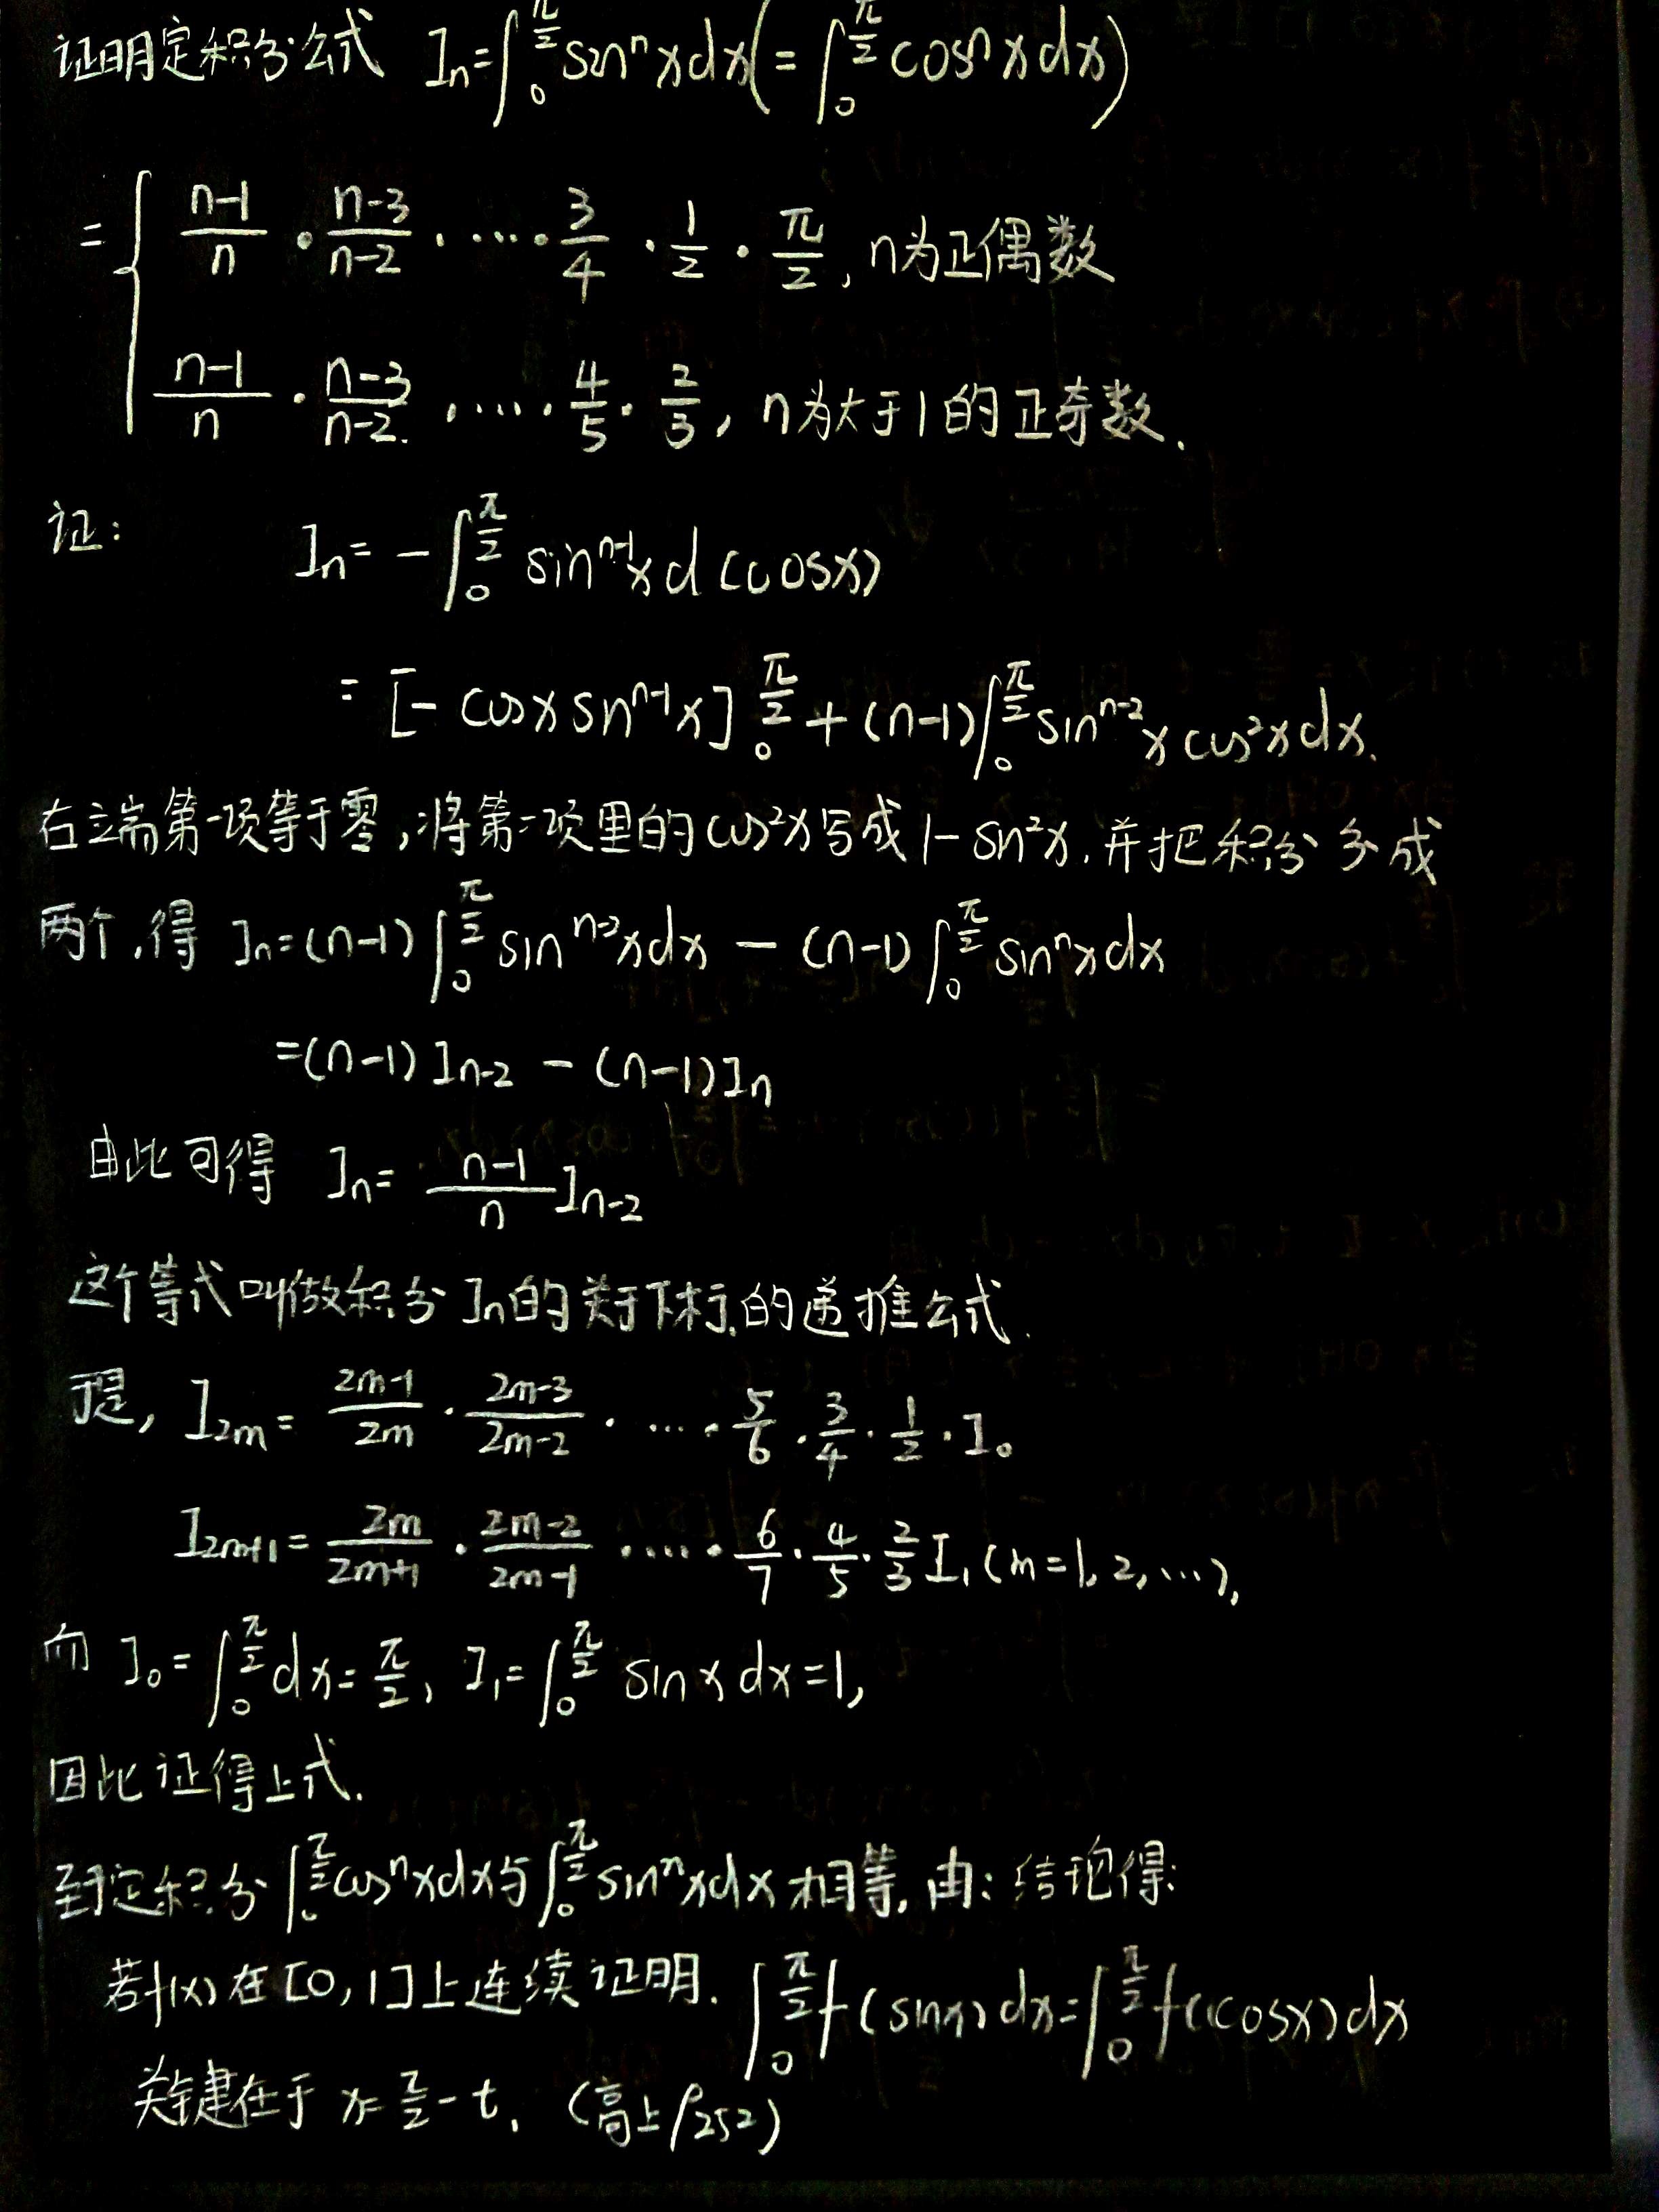 证明定积分公式 Iₙ=∫₀^(π/2) sinⁿxdx(=∫₀^(π/2) cosⁿxdx)
= { (n-1)/n · (n-3)/(n-2) · ···· · 3/4 · 1/2 · π/2, n为正偶数
(n-1)/n · (n-3)/(n-2) · ···· · 4/5 · 2/3, n为大于1的正奇数.
证: Iₙ= -∫₀^(π/2) sinⁿ⁻¹x d(cosx)
= [-cosx sinⁿ⁻¹x]₀^(π/2) + (n-1)∫₀^(π/2) sinⁿ⁻²x cos²xdx.
右端第一项等于零,将第二项里的cos²x写成1-sin²x,并把积分分成
两个,得 Iₙ=(n-1)∫₀^(π/2) sinⁿ⁻²xdx - (n-1)∫₀^(π/2) sinⁿxdx
=(n-1)Iₙ₋₂ - (n-1)Iₙ
由此可得 Iₙ= (n-1)/n Iₙ₋₂
这个等式叫做积分Iₙ的关于下标的递推公式.
于是, I₂ₘ= (2m-1)/2m · (2m-3)/(2m-2) · ··· · 5/6 · 3/4 · 1/2 · I₀
I₂ₘ₊₁= 2m/(2m+1) · (2m-2)/(2m-1) · ··· · 6/7 · 4/5 · 2/3 I₁ (m=1, 2, ···),
而 I₀=∫₀^(π/2) dx=π/2, I₁=∫₀^(π/2) sinxdx=1,
因此证得上式.
至于定积分∫₀^(π/2) cosⁿxdx与∫₀^(π/2) sinⁿxdx相等,由:结论得:
若f(x)在[0,1]上连续证明. ∫₀^(π/2) f(sinx)dx=∫₀^(π/2) f(cosx)dx
关键在于 x=π/2-t. (高上P252)